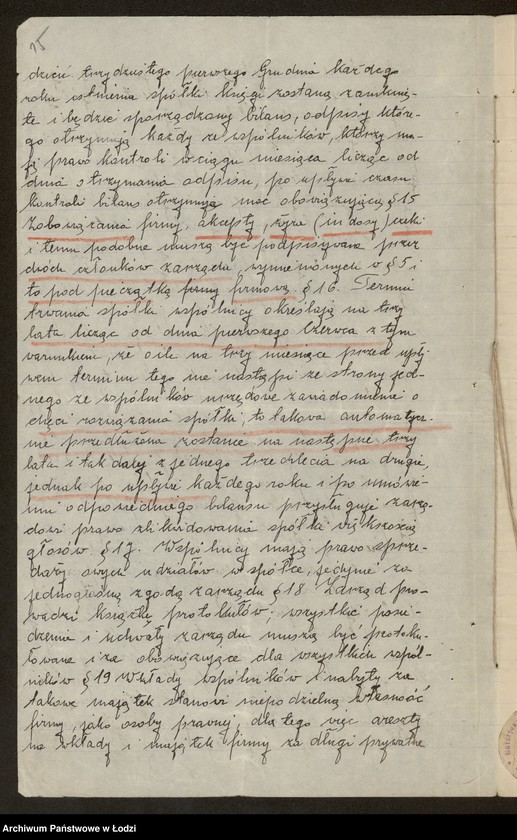 15
dzień trzydziestego pierwszego Grudnia każdego
roku istnienia spółki księgi zostaną zamknię-
te i będzie sporządzony bilans, odpisy które-
go otrzymują każdy ze wspólników, którzy ma-
ją prawo kontroli w ciągu miesiąca licząc od
dnia otrzymania odpisu, po upływie czasu
kontroli bilans otrzymują moc obowiązującą § 15
Zobowiązania firmy, akcepty, żyra (indosy) czeki
i temu podobne muszą być podpisywane przez
dwóch członków zarządu, wymienionych w § 5 i
to pod pieczątką firmy firmową. § 16. Termin
trwania spółki wspólnicy określają na trzy
lata licząc od dnia pierwszego Czerwca z tym
warunkiem, że o ile na trzy miesiące przed upły-
wem terminu tego nie nastąpi ze strony jed-
nego ze wspólników urzędowe zawiadomienie o
chęci rozwiązania spółki, to takowa automatycz-
nie przedłużona zostanie na następne trzy
lata i tak dalej z jednego trzechlecia na drugie,
jednak po upływie każdego roku i po
odpowiedniego bilansu przysługuje zarzą-
dowi prawo zlikwidowania spółki większością
głosów § 17. Wspólnicy mają prawo sprze-
daży swych udziałów w spółce, jedynie za
jednogłośną zgodą zarządu § 18. Zarząd pro-
wadzi książkę protokułów; wszystkie posie-
dzenia i uchwały zarządu muszą być protoku-
łowane i za obowiązujące dla wszystkich wspól-
ników § 19 Wkłady wspólników i nabyty za
takowe majątek stanowi niepodzielną własność
firmy, jako osoby prawnej, dla tego więc areszty
na wkłady i majątek firmy za długi prywatne
Archiwum Państwowe w Łodzi